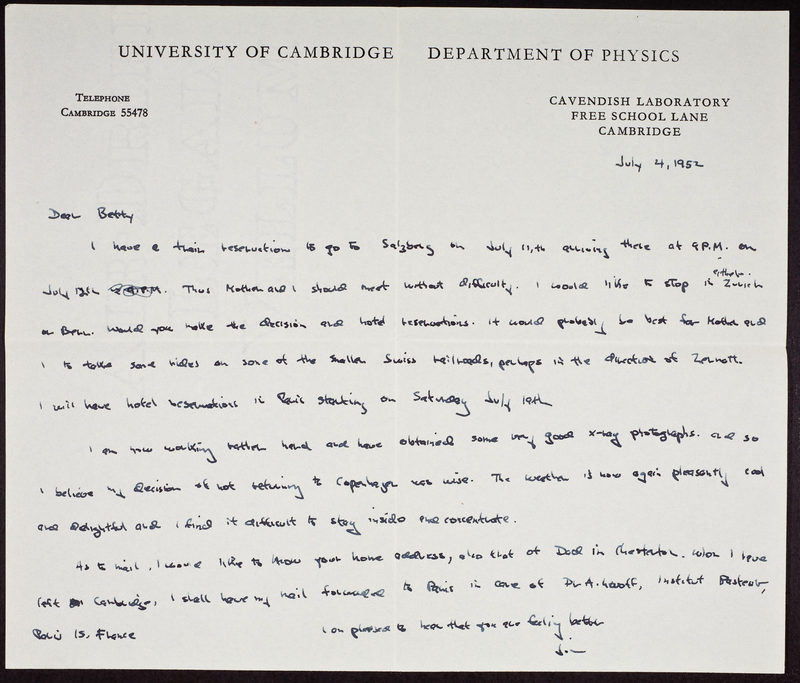 UNIVERSITY OF CAMBRIDGE DEPARTMENT OF PHYSICS
TELEPHONE
CAMBRIDGE 55478
CAVENDISH LABORATORY
FREE SCHOOL LANE
CAMBRIDGE
July 4, 1952
Dear Betty
I have a train reservation to go to Salzburg on July 11,th arriving there at 9 P.M. on
July 12th. Thus Mother and I should meet without difficulty. I would like to stop in either Zurich
or Bern. Would you make the decision and hotel reservations. It would probably be best for Mother and
I to take some rides on some of the smaller Swiss railroads, perhaps in the direction of Zermatt.
I will have hotel reservations in Paris starting on Saturday July 19th
I am now working rather hard and have obtained some very good x-ray photographs. and so
I believe my decision of not returning to Copenhagen was wise. The weather is now again pleasantly cool
and delightful and I find it difficult to stay inside and concentrate.
As to mail, I would like to know your home address, also that of Dad in Chesterton. When I have
left Cambridge, I shall have my mail forwarded to Paris in care of Dr A. Lwoff, Institut Pasteur,
Paris 15, France
I am pleased to hear that you are feeling better
Jim